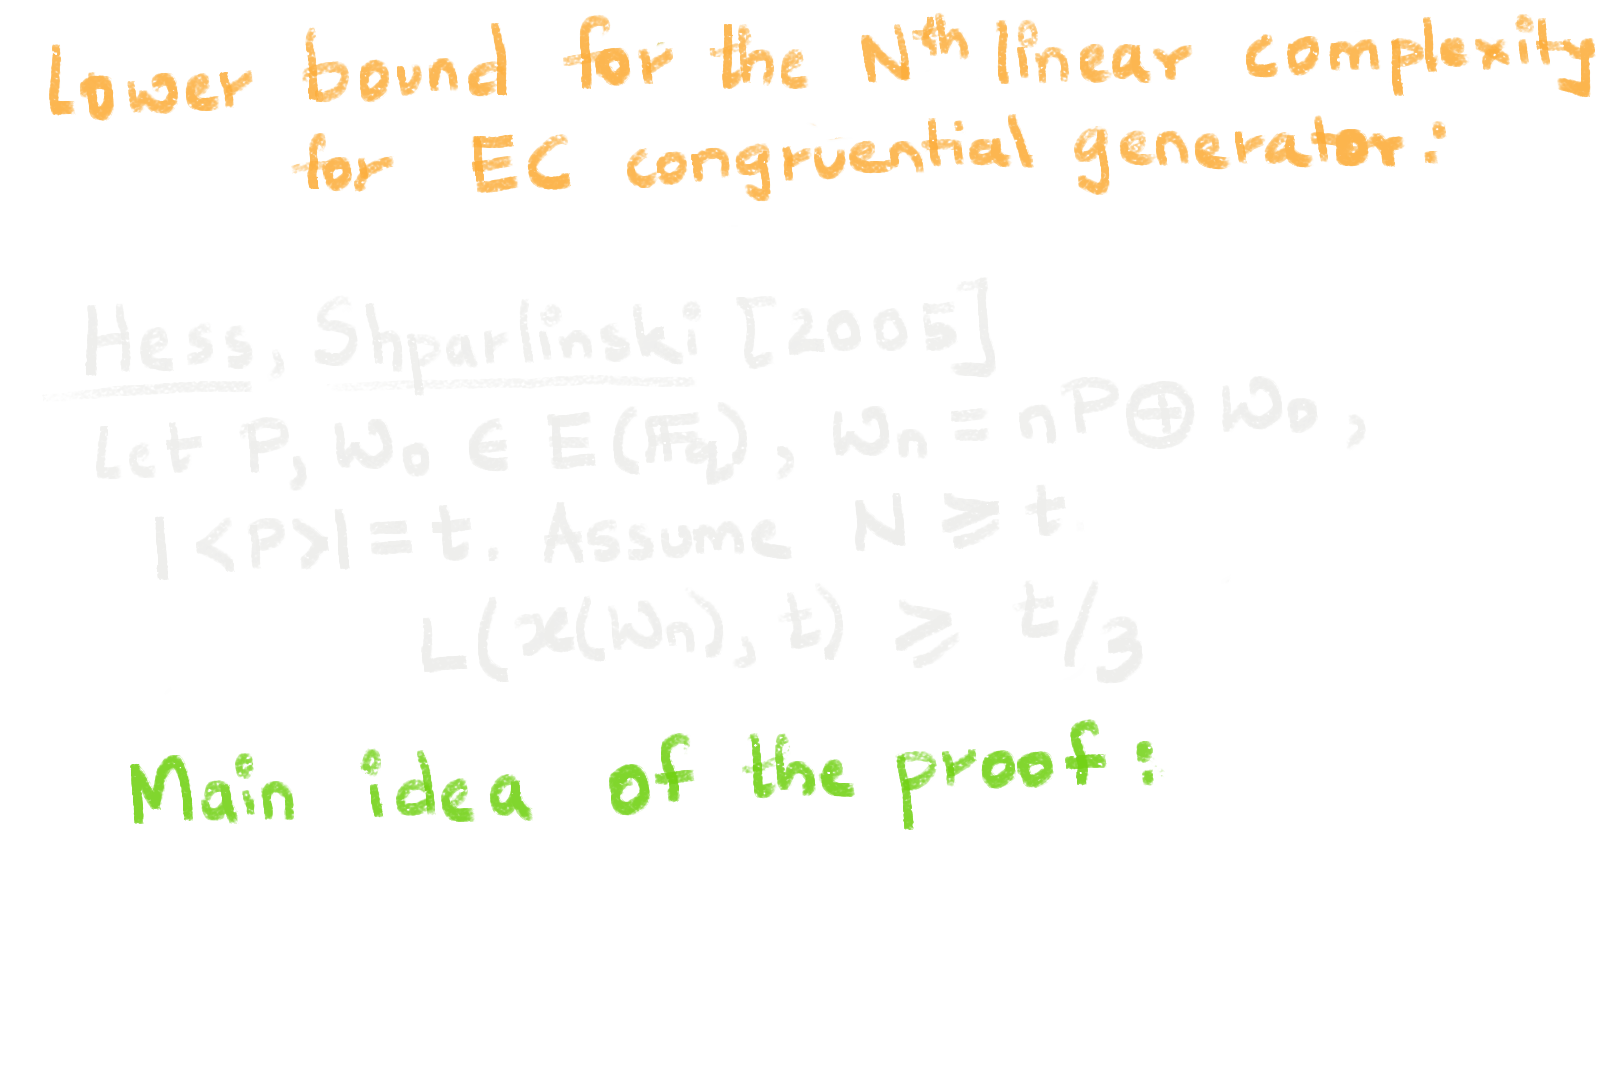 Lower bound for the Nth linear complexity
for EC congruential generator:
Hess, Shparlinski [2005]
Let P, W₀ ∈ E(𝔽q), Wn = nP ⊕ W₀,
|<P>| = t. Assume N ⩾ t
L(x(Wn), t) ⩾ t/3
Main idea of the proof: